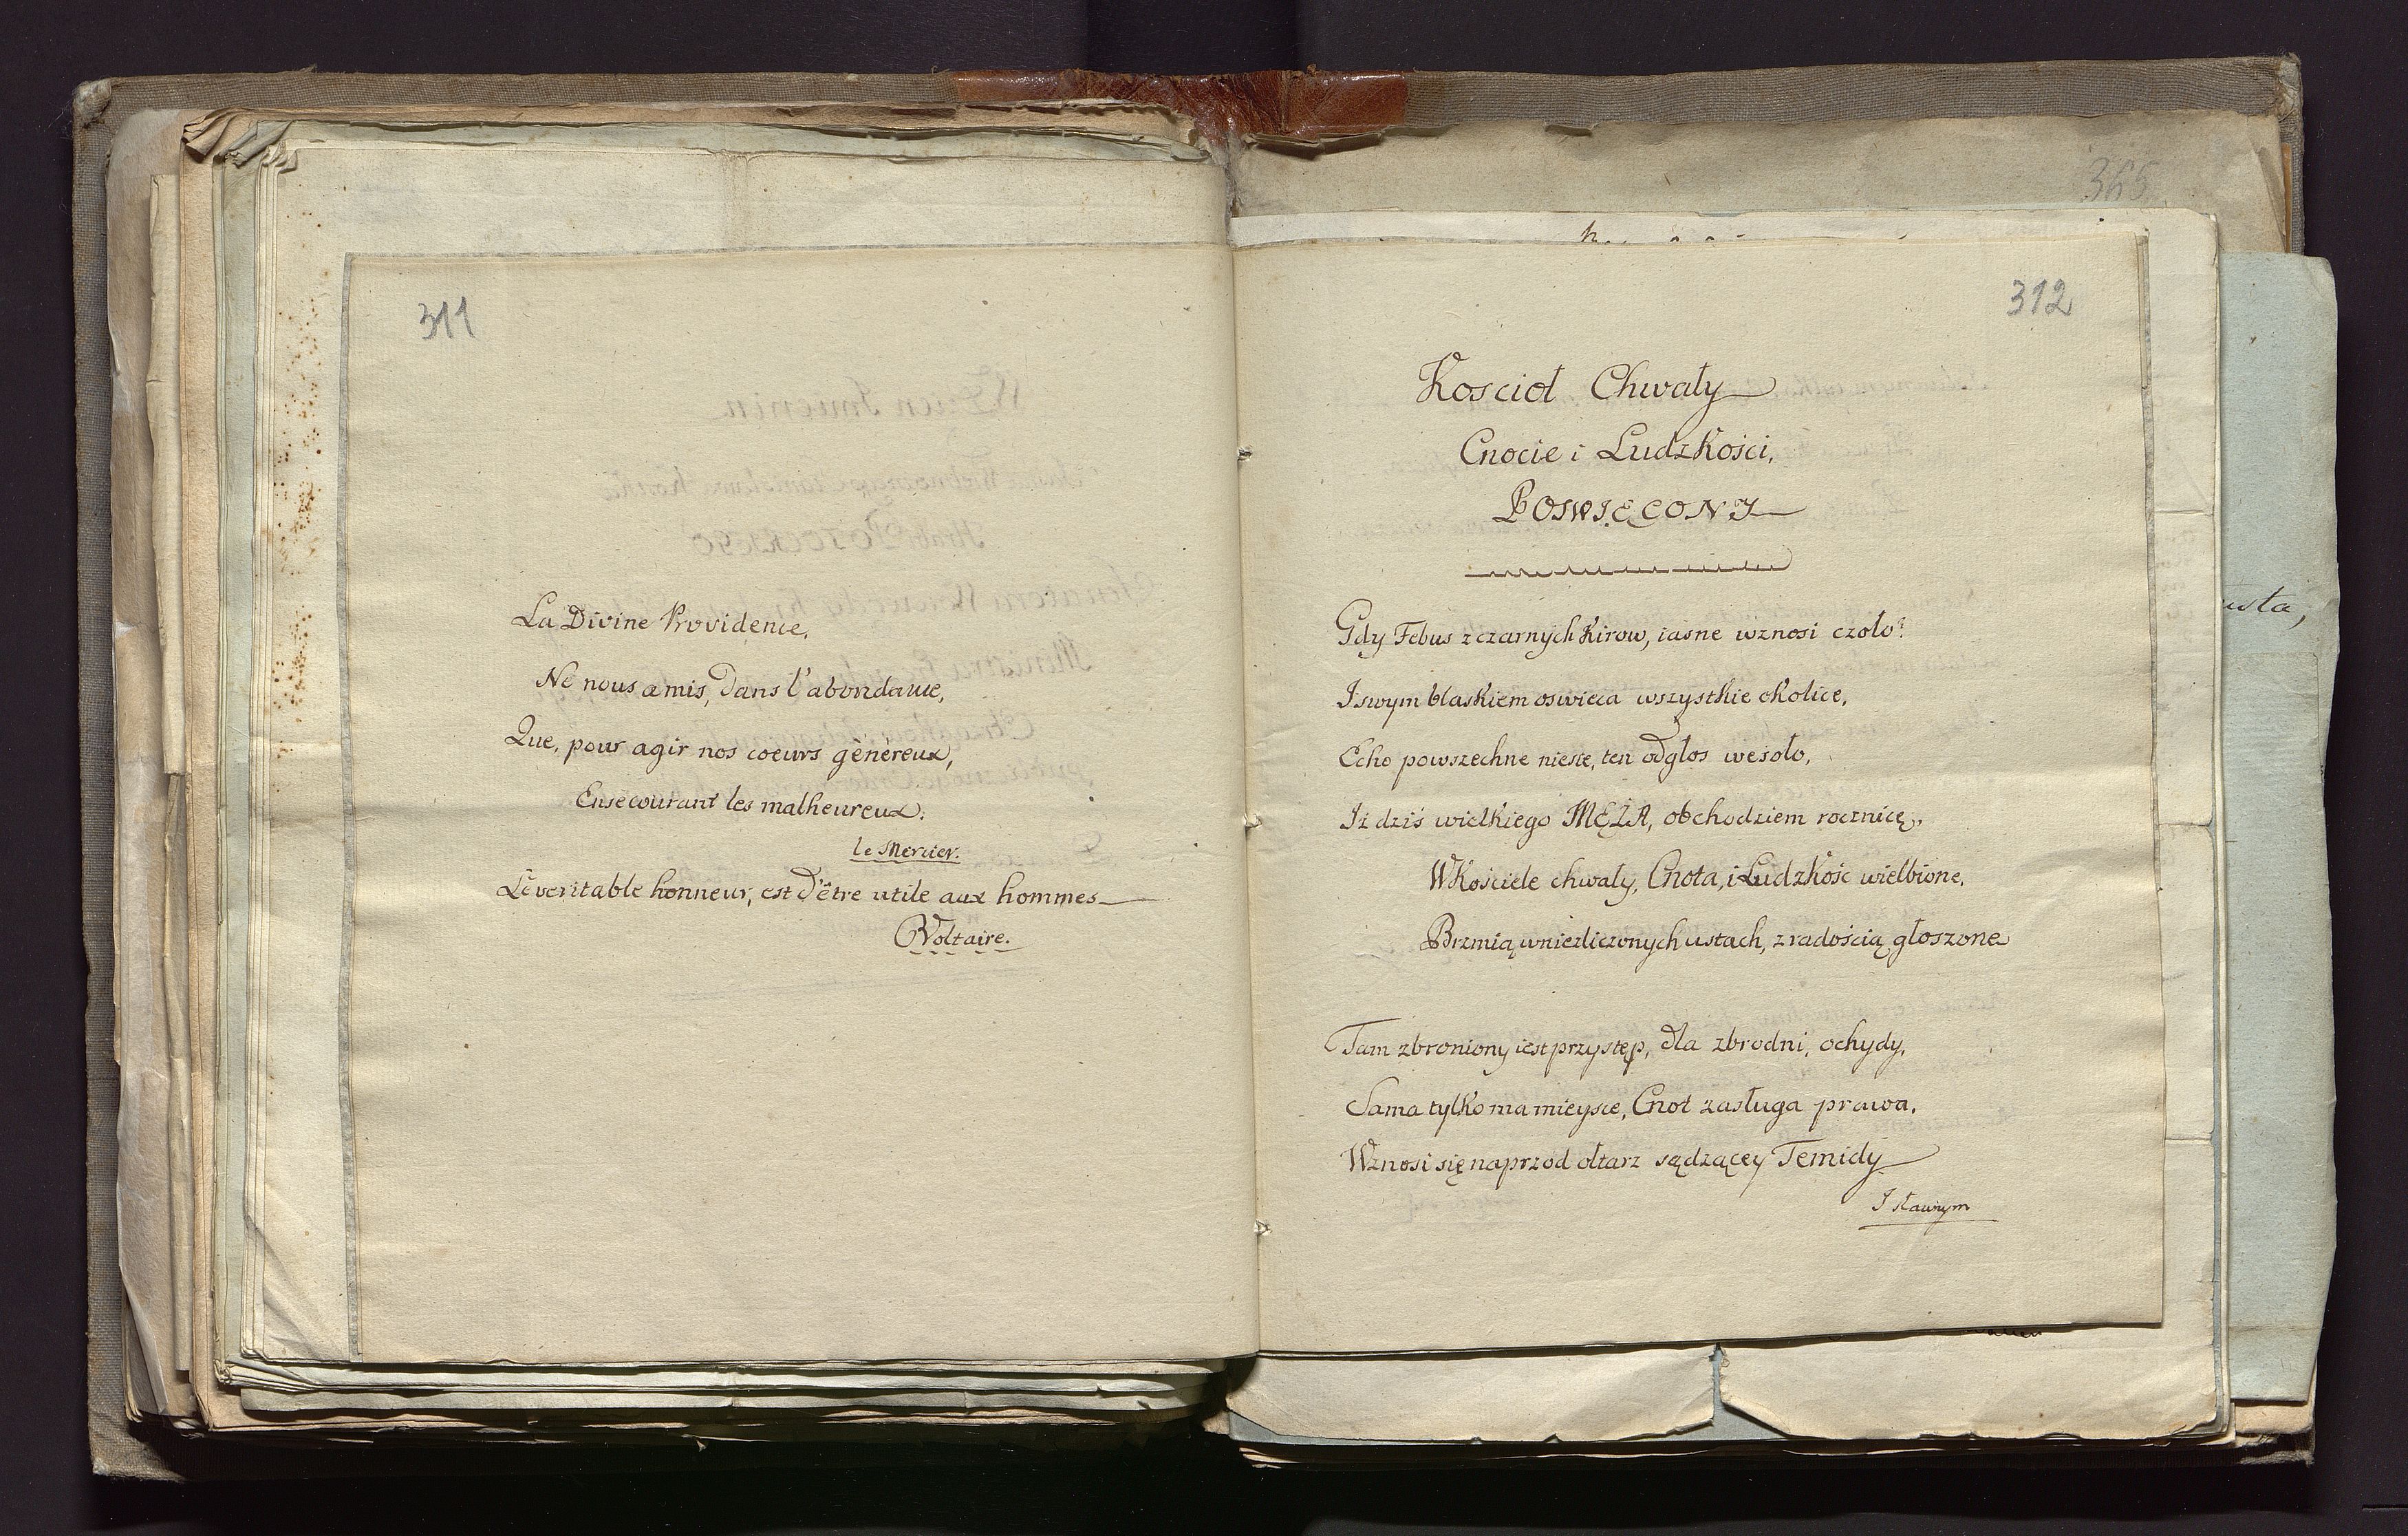 311
La Divine Providence,
Ne nous a mis, dans l'abondance,
Que, pour agir nos coeurs généreux,
En secourant les malheureux.
le Mercier.
Le veritable honneur, est d'être utile aux hommes
Voltaire.
365
312
Kosciół Chwały
Cnocie i Ludzkości,
POSWIĘCONY
Gdy Febus z czarnych Kirow, iasne wznosi czoło?
I swym blaskiem oswieca wszystkie okolice,
Echo powszechne niesie, ten odgłos wesoło,
Iż dziś wielkiego MĘŻA, obchodziem rocznicę,
W Kościele chwały, Cnota, i Ludzkośc wielbione,
Brzmią w niezliczonych ustach, z radością głoszone
Tam zbroniony iest przystęp, dla zbrodni, ochydy,
Sama tylko ma mieysce, Cnot zasługa prawa,
Wznosi się naprzod ołtarz sądzącey Temidy
I sławnym